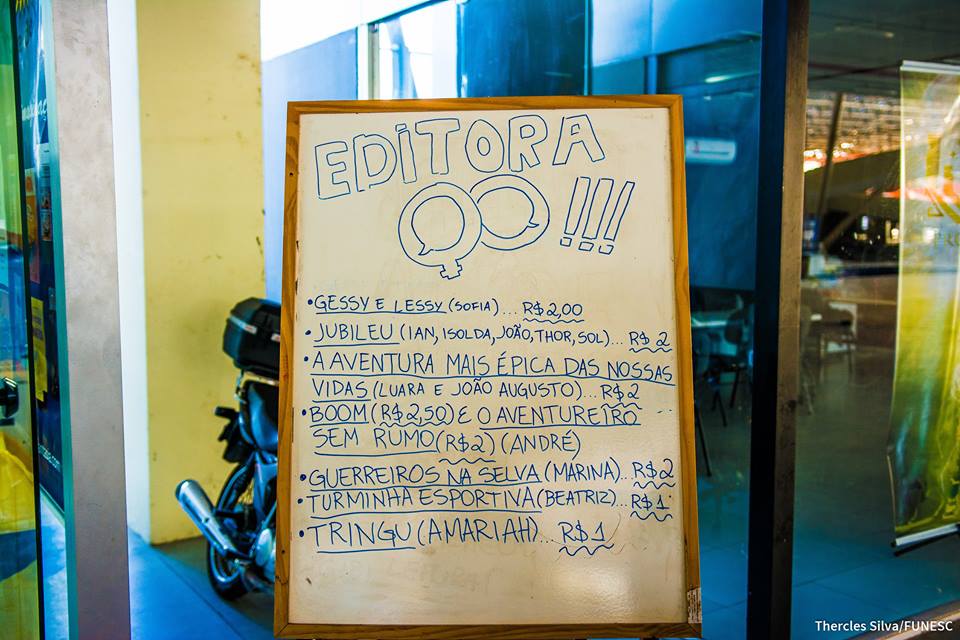 EDITORA
!!!!
•GESSY E LESSY (SOFIA)... R$2,00
•JUBILEU (IAN, ISOLDA, JOÃO, THOR, SOL)... R$ 2
•A AVENTURA MAIS ÉPICA DAS NOSSAS
VIDAS (LUARA E JOÃO AUGUSTO)... R$2
•BOOM (R$2,50) E O AVENTUREIRO
SEM RUMO (R$2) (ANDRÉ)
•GUERREIROS NA SELVA (MARINA)... R$2
•TURMINHA ESPORTIVA (BEATRIZ)... R$1
•TRINGU (AMARIAH)... R$1
Thercles Silva/FUNESC